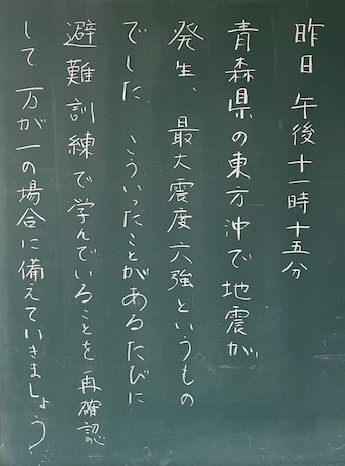 昨日 午後十一時十五分
青森県の東方沖で地震が、
発生、最大震度六強というもの
でした。こういったことがあるたびに
避難訓練で学んでいることを再確認
して 万が一の場合に備えていきましょう。